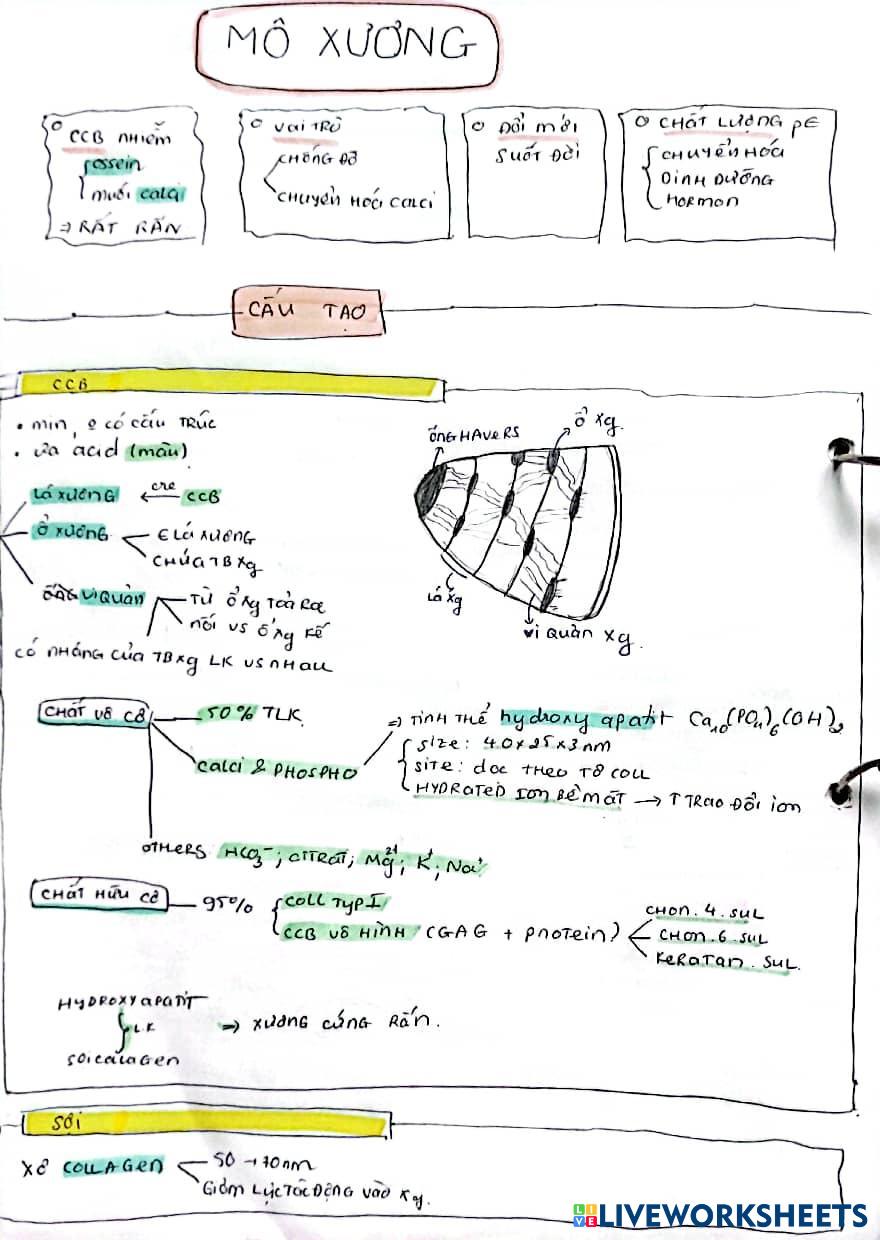 MÔ XƯƠNG
CCB NHIỄM
ossein
muối calci
=> RẤT RẮN
VAI TRÒ
CHỐNG ĐỠ
CHUYỂN HOÁ CALCI
ĐỔI MỚI
SUỐT ĐỜI
CHẤT LƯỢNG ∈
CHUYỂN HOÁ
DINH DƯỠNG
HORMON
CẤU TẠO
CCB
• mịn, có CẤU TRÚC
• ưa acid (màu)
LÁ XƯƠNG ← CCB
Ổ XƯƠNG
∈ LÁ XƯƠNG
CHỨA TB Xg
VI QUẢN
TỪ Ổ Xg TOẢ RA
NỐI VS Ổ Xg KẾ
CÓ NHÁNG CỦA TB Xg LK VS NHAU
ỐNG HAVERS
Ổ Xg.
LÁ Xg
VI QUẢN Xg.
CHẤT VÔ CƠ
50% TLK
CALCI & PHOSPHO
=> TINH THỂ hydroxy apatit Ca10(PO4)6(OH)2
size: 40x25x3nm
SITE: dọc THEO TỜ COLL
HYDRATED ION BỀ MẶT → ↑ TRAO ĐỔI ion
OTHERS HCO3-; CITRAT; Mg2+; K+; Na+
CHẤT HỮU CƠ
95%
COLL TYP I
CCB VÔ HÌNH (GAG + PROTEIN)
CHON. 4. SUL
CHON. 6. SUL
KERATAN. SUL.
HYDROXYAPATIT
LK
=> XƯƠNG CỨNG RẮN.
SỢI COLLAGEN
SỢI
XƠ COLLAGEN
50 → 70nm
GIẢM LỰC TÁC ĐỘNG VÀO Xg.
LIVEWORKSHEETS